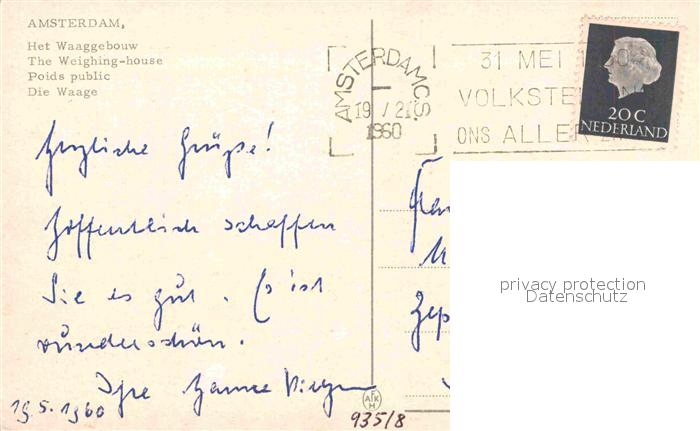 AMSTERDAM,
Het Waaggebouw
The Weighing-house
Poids public
Die Waage
Herzliche Grüße!
Hoffentlich schaffen
Sie es gut. Es ist
wunderschön.
Ihre Hanne
19.5.1960
935/8
AMSTERDAM C.S.
19 / 21
1960
31 MEI
VOLKSTE
ONS ALLER
20 C
NEDERLAND
privacy protection
Datenschutz